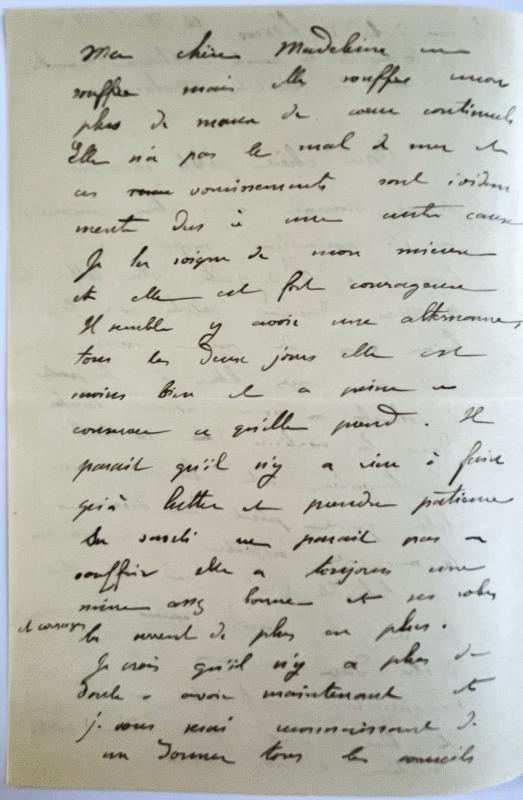 Ma chère Madeleine en
souffre mais elle souffre encore
plus de maux de cœur continuels
Elle n'a pas le mal de mer et
ces vomissements sont évidem
ment dus à une autre cause
Je la soigne de mon mieux
et elle est fort courageuse
Il semble y avoir une alternance,
tous les deux jours elle est
moins bien et a peine a
conserver ce qu'elle prend. Il
parait qu'il n'y a rien à faire
qu'à lutter et prendre patience
Sa santé ne parait pas en
souffrir elle a toujours une
mine assez bonne et ses robes
et corsages
la serrent de plus en plus.
Je crois qu'il n'y a plus de
doute a avoir maintenant et
je vous serai reconnaissant de
me donner tous les conseils